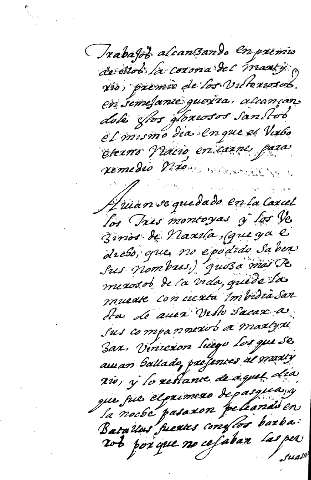 Trabajos alcanzando en premio
de ellos la corona del marty
rio, premio de los Victoriosos
en semejante guerra, alcançan
dole estos gloriosos Sanctos
el mismo dia en que el Verbo
eterno Nacio en carne para
remedio Nro.
Avianse quedado en la Carcel
los Tres montoyas y los Ve
zinos de Narila, (que ya e
dicho, que no e podido saber
sus nombres,) quiza mas Te
merosos de la vida, que de la
muerte con cierta Imbidia San
cta de aver Visto sacar a
sus companneros a martyri
zar. Vinieron luego los que se
avian hallado presentes al marty
rio, y lo restante de aquel dia
que fue el primero de pasqua, y
la noche pasaron peleando en
Batallas fuertes con los barba
ros porque no cesaban las per
suasi